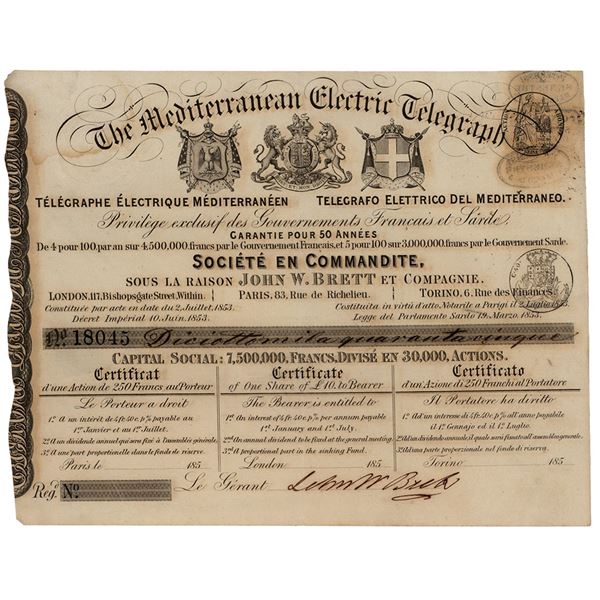 The Mediterranean Electric Telegraph
TÉLÉGRAPHE ÉLECTRIQUE MÉDITERRANÉEN TELEGRAFO ELETTRICO DEL MEDITERRANEO.
Privilège exclusif des Gouvernements Français et Sarde.
GARANTIE POUR 50 ANNÉES
De 4 pour 100, par an sur 4,500,000, francs par le Gouvernement Français, et 5 pour 100 sur 3,000,000, francs par le Gouvernement Sarde.
SOCIÉTÉ EN COMMANDITE,
SOUS LA RAISON JOHN W. BRETT ET COMPAGNIE.
LONDON, 117, Bishopsgate Street, Within. PARIS, 83, Rue de Richelieu. TORINO, 6, Rue des Finances.
Constituée par acte en date du 2. Juillet, 1853. Costituita in virtù d'atto Notarile a Parigi il 2. Luglio 1853.
Décret Impérial 10. Juin, 1853. Legge del Parlamento Sardo 19. Marzo, 1853.
No. 18045 Diciottomila quaranta cinque
CAPITAL SOCIAL: 7,500,000, FRANCS, DIVISÉ EN 30,000, ACTIONS.
Certificat Certificate Certificato
d'une Action de 250 Francs au Porteur of One Share of £10. to Bearer d'un Azione di 250 Franchi al Portatore
Le Porteur a droit The Bearer is entitled to Il Portatore ha diritto
1º. A un intérêt de 4 fr. 50 c. p% payable au 1º. An interest of 4 fr. 50 c. p% per annum payable 1º. Ad un interesse di 4 fr. 50 c. p% all anno payabile
1er. Janvier et au 1er. Juillet. 1st. January and 1st. July. il 1º. Gennajo ed il 1º. Luglio.
2º. A un dividende annuel qui sera fixé à l'assemblée générale. 2nd. An annual dividend to be fixed at the general meeting. 2º. Ad un dividendo annuale, il quale sarà fissato all assemblea generale.
3º. A une part proportionelle dans le fonds de réserve. 3rd. A proportional part in the sinking Fund. 3º. Ad una parte proporzionale nel fondo di riserva.
Paris le 185 London 185 Torino 185
Regd. No. Le Gérant John W Brett